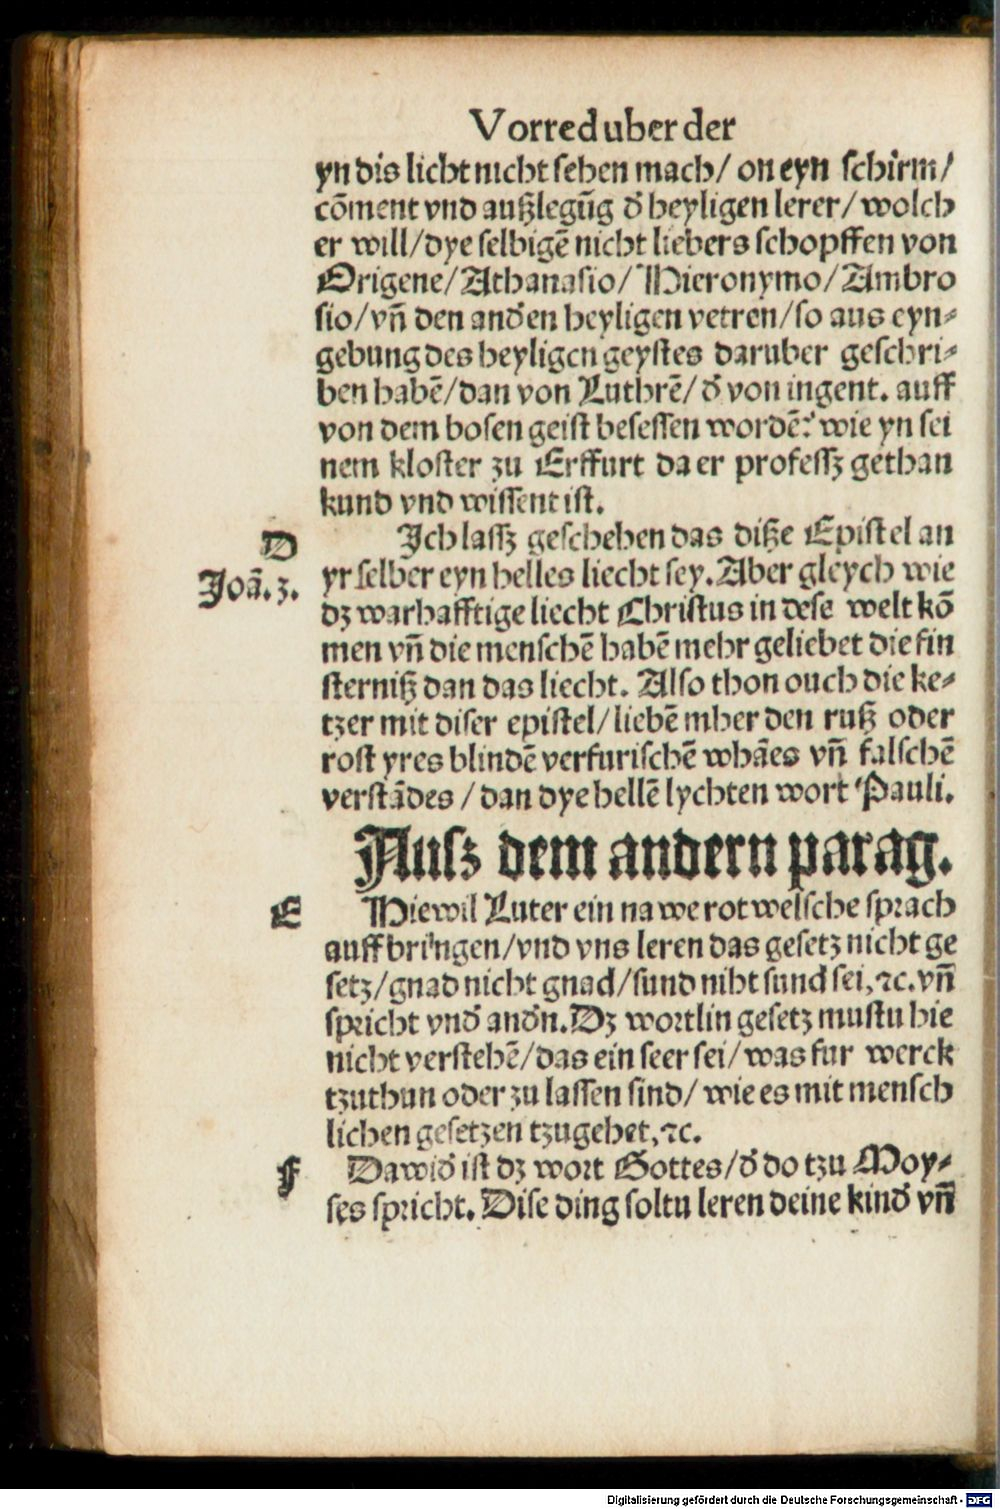 Vorred uber der
yn dis licht nicht sehen mach/ on eyn schirm/
cōment vnd außlegūg d̄ heyligen lerer/ wolch
er will/dye selbigē nicht liebers schopffen von
Origene/Athanasio/ Hieronymo/Ambro
sio/vn̄ den and̄en heyligen vetren/so aus eyn⸗
gebung des heyligen geystes daruber geschri⸗
ben habē/dan von Luthrē/d̄ von ingent. auff
von dem bosen geist besessen wordē: wie yn sei
nem kloster zu Erffurt da er professz gethan
kund vnd wissent ist.
D
Ich lassz geschehen das diße Epistel an
Joā. 3.
yr selber eyn helles liecht sey. Aber gleych wie
dz warhafftige liecht Christus in dese welt kō
men vn̄ die menschē habē mehr geliebet die fin
sterniß dan das liecht. Also thon ouch die ke⸗
tzer mit diser epistel/liebē mher den ruß oder
rost yres blindē verfurischē whāes vn̄ falschē
verstādes /dan dye hellē lychten wort Pauli.
Ausz dem andern parag.
E
Hie wil Luter ein nawe rotwelsche sprach
auffbringen/vnd vns leren das gesetz nicht ge
setz/gnad nicht gnad/sund niht sund sei,⁊c. vn̄
spricht vnd̄ and̄n. Dz wortlin gesetz mustu hie
nicht verstehē/das ein leer sei/was fur werck
tzuthun oder zu lassen sind/ wie es mit mensch
lichen gesetzen tzugehet,⁊c.
F
Dawid̄ ist dz wort Gottes/d̄ do tzu Moy⸗
ses spricht. Dise ding soltu leren deine kind̄ vn̄
Digitalisierung gefördert durch die Deutsche Forschungsgemeinschaft - DFG